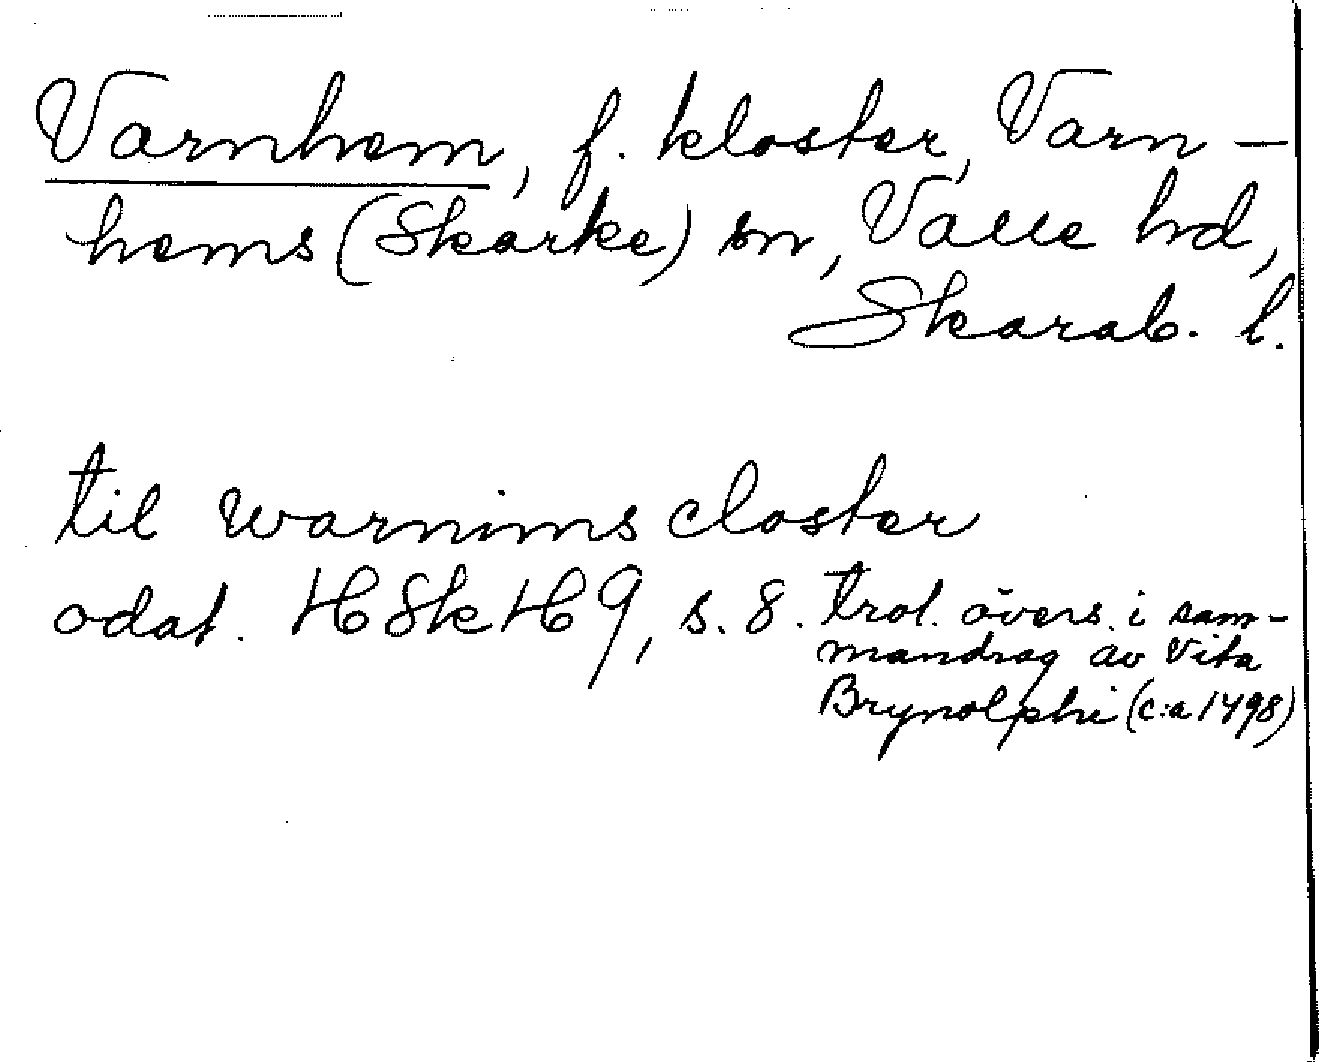 Varnhem, f. kloster, Varn-
hems (Skarke) sn, Valle hd,
Skarab. l.
til warnims closter
odat. HSkH 9, s. 8. trol. övers. i sam-
mandrag av Vita
Brynolphi (c:a 1498)